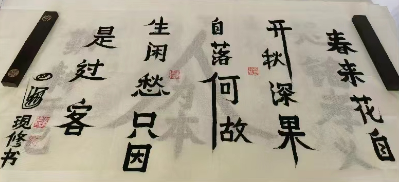 春来花自
开秋深果
自落何故
生闲愁只因
是过客
现修书